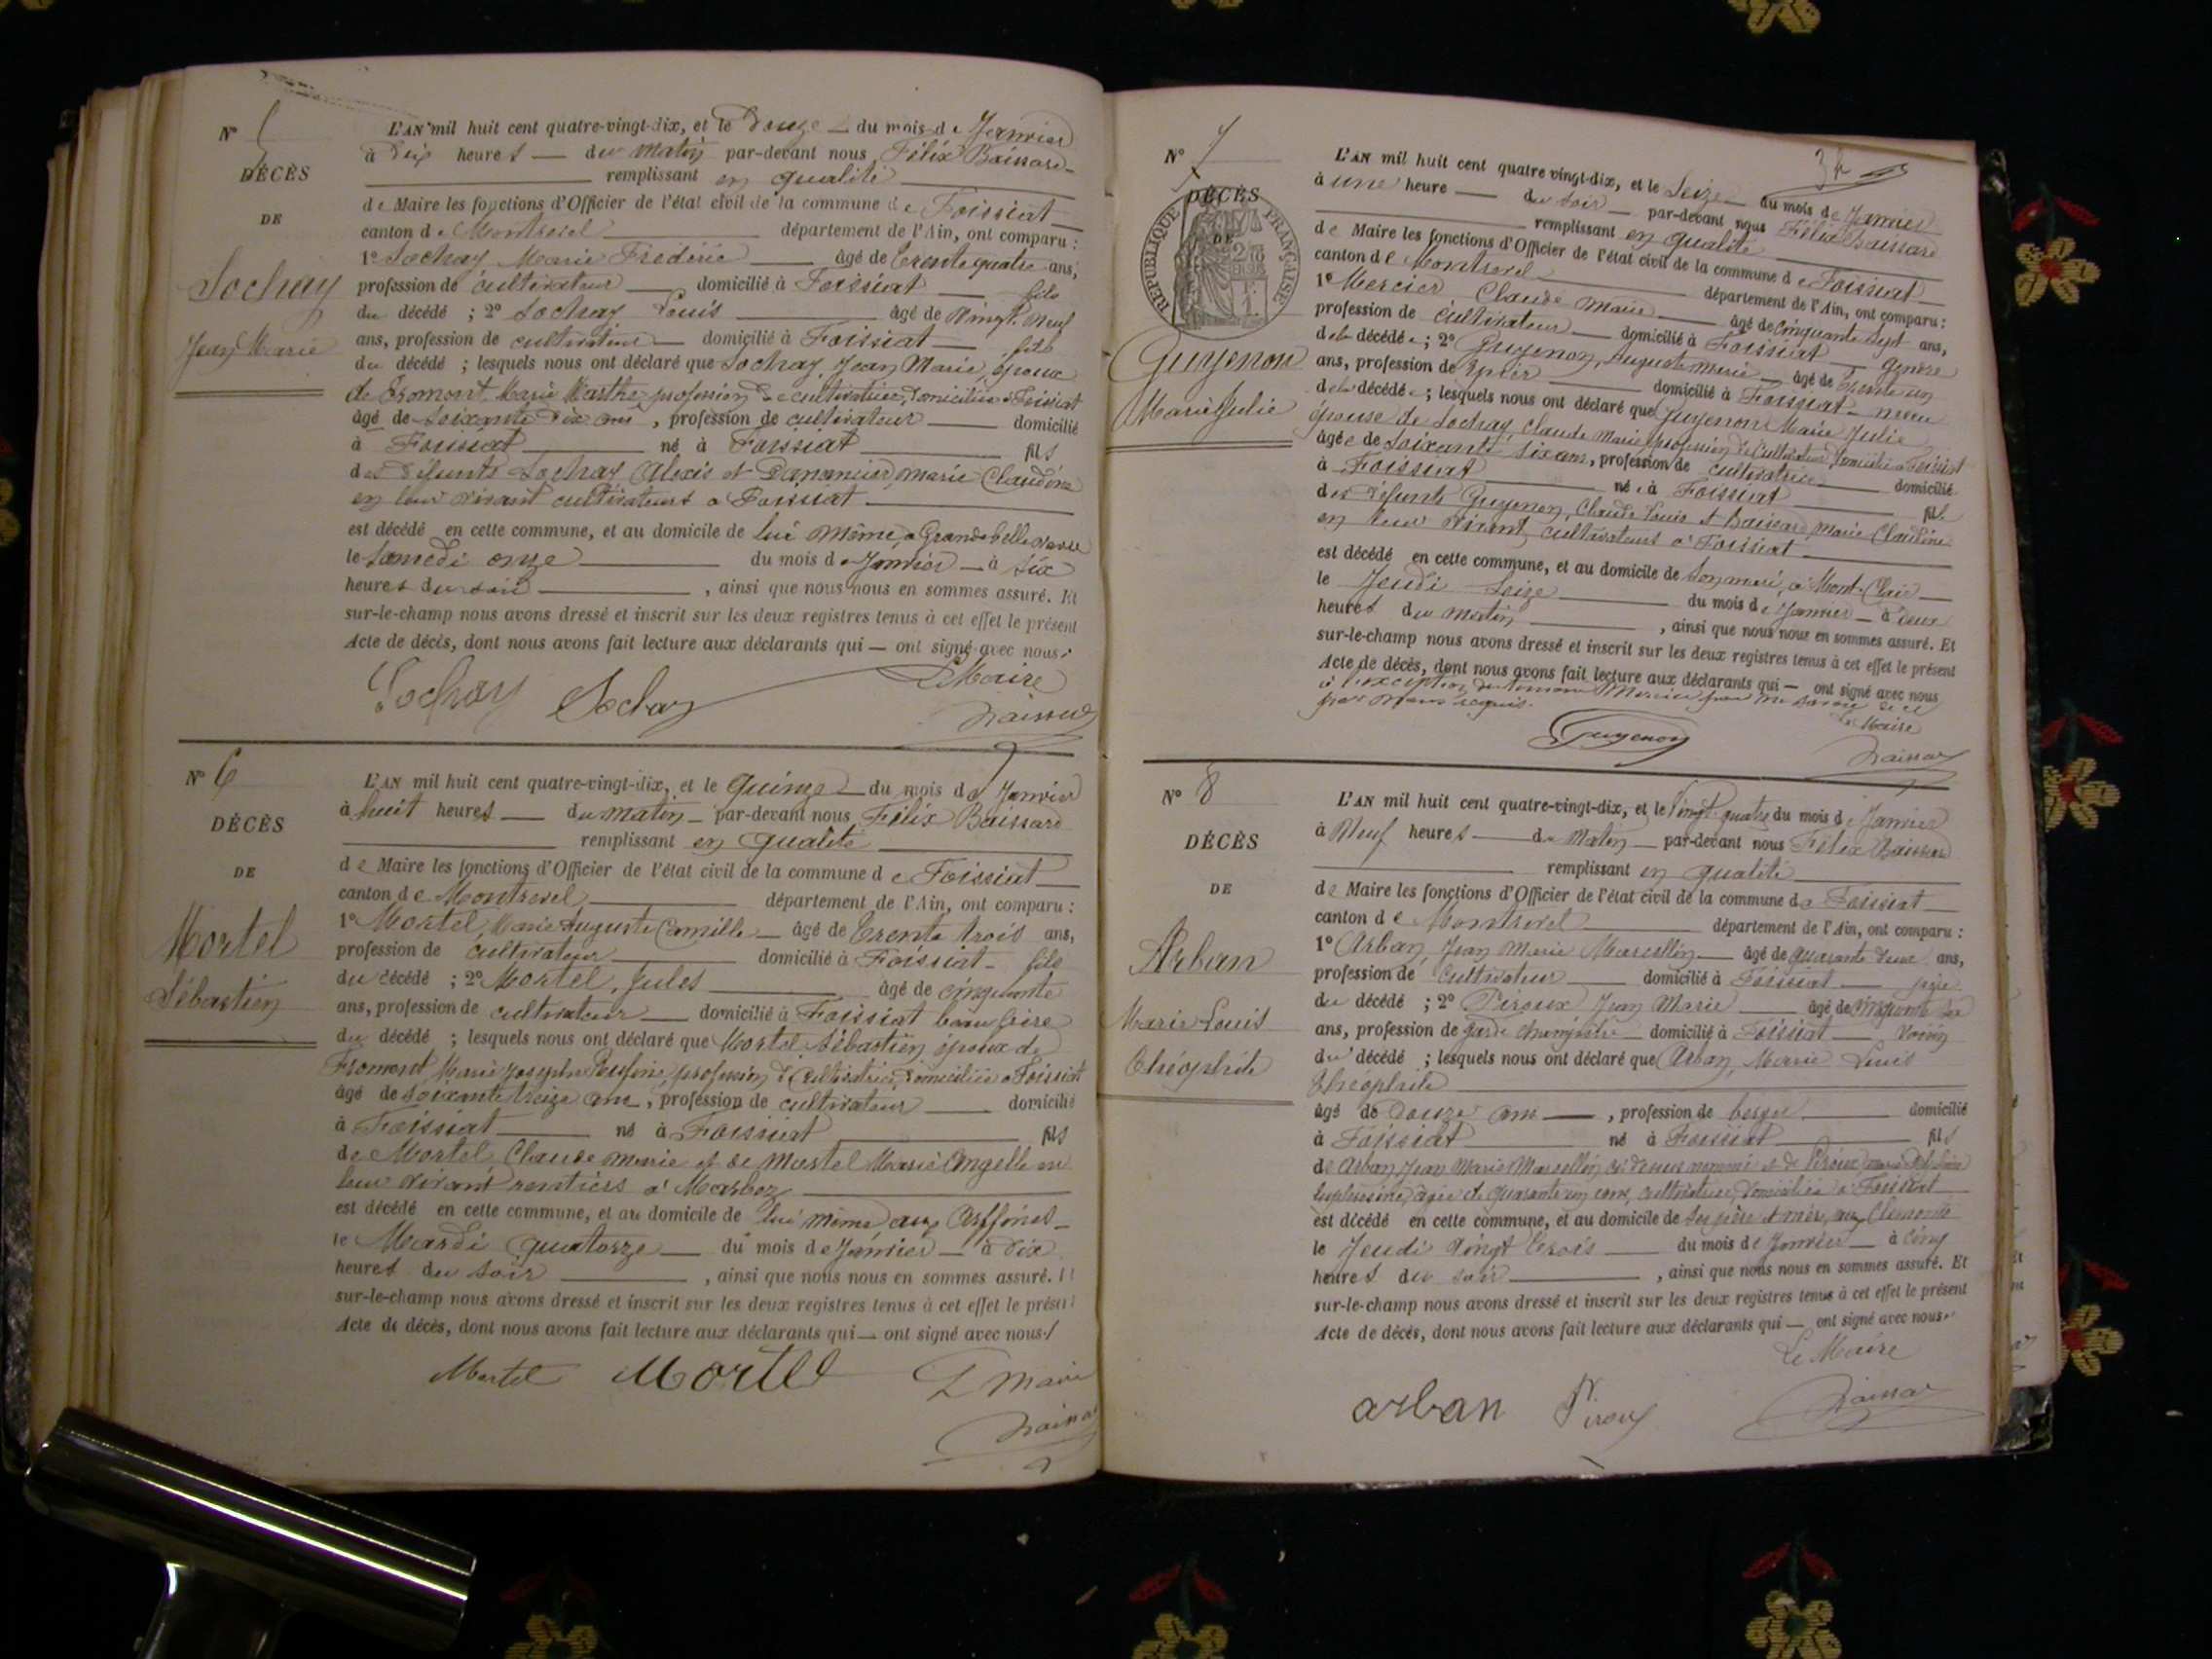 N° 5
DÉCÈS
DE
Sochay
Jean Marie
L'AN mil huit cent quatre-vingt-dix, et le Douze du mois de Janvier
à Dix heures du matin par-devant nous Félix Baissard
remplissant en qualité
de Maire les fonctions d'Officier de l'état civil de la commune de Foissiat
canton de Montrevel département de l'Ain, ont comparu :
1° Sochay Marie Frédéric âgé de trente quatre ans,
profession de cultivateur domicilié à Foissiat fils
du décédé ; 2° Sochay Louis âgé de vingt neuf
ans, profession de cultivateur domicilié à Foissiat fils
du décédé ; lesquels nous ont déclaré que Sochay, Jean Marie, époux
de Marie Marthe profession de cultivatrice, domiciliée à Foissiat
âgé de soixante dix ans, profession de cultivateur domicilié
à Foissiat né à Foissiat fils
des défunts Sochay Alexis et Marie Claudine
en leur vivant cultivateurs à Foissiat
est décédé en cette commune, et au domicile de lui même, à
le Samedi onze du mois de Janvier à six
heures du soir, ainsi que nous nous en sommes assuré. Et
sur-le-champ nous avons dressé et inscrit sur les deux registres tenus à cet effet le présent
Acte de décès, dont nous avons fait lecture aux déclarants qui — ont signé avec nous.
Sochay Sochay Le Maire
Baissard
N° 6
DÉCÈS
DE
Mortel
Sébastien
L'AN mil huit cent quatre-vingt-dix, et le Quinze du mois de Janvier
à huit heures du matin par-devant nous Félix Baissard
remplissant en qualité
de Maire les fonctions d'Officier de l'état civil de la commune de Foissiat
canton de Montrevel département de l'Ain, ont comparu :
1° Mortel, Marie Auguste Camille âgé de trente trois ans,
profession de cultivateur domicilié à Foissiat fils
du décédé ; 2° Mortel, Jules âgé de cinquante
ans, profession de cultivateur domicilié à Foissiat beau frère
du décédé ; lesquels nous ont déclaré que Mortel Sébastien époux de
Fromont Marie Josephe profession de cultivatrice, domiciliée à Foissiat
âgé de soixante treize ans, profession de cultivateur domicilié
à Foissiat né à Foissiat fils
de Mortel Claude Marie et de Mortel Marie Angelle en
leur vivant rentiers à Marboz
est décédé en cette commune, et au domicile de lui même aux
le Mardi quatorze du mois de Janvier à dix
heures du soir, ainsi que nous nous en sommes assuré. Et
sur-le-champ nous avons dressé et inscrit sur les deux registres tenus à cet effet le présent
Acte de décès, dont nous avons fait lecture aux déclarants qui — ont signé avec nous.
Mortel Mortel L Maire
Baissard
N° 7
DÉCÈS
DE
RÉPUBLIQUE FRANÇAISE
Guyenon
Marie Julie
L'AN mil huit cent quatre-vingt-dix, et le Seize du mois de Janvier
à une heure du soir par-devant nous Félix Baissard
remplissant en qualité
de Maire les fonctions d'Officier de l'état civil de la commune de Foissiat
canton de Montrevel département de l'Ain, ont comparu :
1° Mercier Claude Marie âgé de cinquante sept ans,
profession de cultivateur domicilié à Foissiat gendre
de la décédée ; 2° Guyenon, Auguste Marie âgé de trente un
ans, profession de domicilié à Foissiat neveu
de la décédée ; lesquels nous ont déclaré que Guyenon Marie Julie
épouse de Sochay, Claude Marie profession de cultivateur, domicilié à Foissiat
âgée de soixante six ans, profession de cultivatrice domicilié
à Foissiat née à Foissiat fil
des défunts Guyenon, Claude Louis et Baissard Marie Claudine
en leur vivant cultivateurs à Foissiat
est décédé en cette commune, et au domicile de son mari, à Mont-Clair
le Jeudi Seize du mois de Janvier à deux
heures du matin, ainsi que nous nous en sommes assuré. Et
sur-le-champ nous avons dressé et inscrit sur les deux registres tenus à cet effet le présent
Acte de décès, dont nous avons fait lecture aux déclarants qui — ont signé avec nous
à l'exception du témoin Mercier pour ne savoir de ce
par nous requis.
Le Maire
Guyenon Baissard
N° 8
DÉCÈS
DE
Arban
Marie Louis
Théophile
L'AN mil huit cent quatre-vingt-dix, et le vingt quatre du mois de Janvier
à Neuf heures du Matin par-devant nous Félix Baissard
remplissant en qualité
de Maire les fonctions d'Officier de l'état civil de la commune de Foissiat
canton de Montrevel département de l'Ain, ont comparu :
1° Arban, Jean Marie Marcellin âgé de quarante deux ans,
profession de cultivateur domicilié à Foissiat père
du décédé ; 2° Piroux Jean Marie âgé de cinquante six
ans, profession de garde champêtre domicilié à Foissiat voisin
du décédé ; lesquels nous ont déclaré que Arban, Marie Louis
Théophile
âgé de douze ans, profession de berger domicilié
à Foissiat né à Foissiat fils
de Arban Jean Marie Marcellin ci-dessus nommé et de Piroux Marie
âgée de quarante un ans, cultivatrice, domiciliée à Foissiat
est décédé en cette commune, et au domicile de ses père et mère, aux
le Jeudi vingt trois du mois de Janvier à cinq
heures du soir, ainsi que nous nous en sommes assuré. Et
sur-le-champ nous avons dressé et inscrit sur les deux registres tenus à cet effet le présent
Acte de décès, dont nous avons fait lecture aux déclarants qui — ont signé avec nous.
Le Maire
arban Piroux Baissard